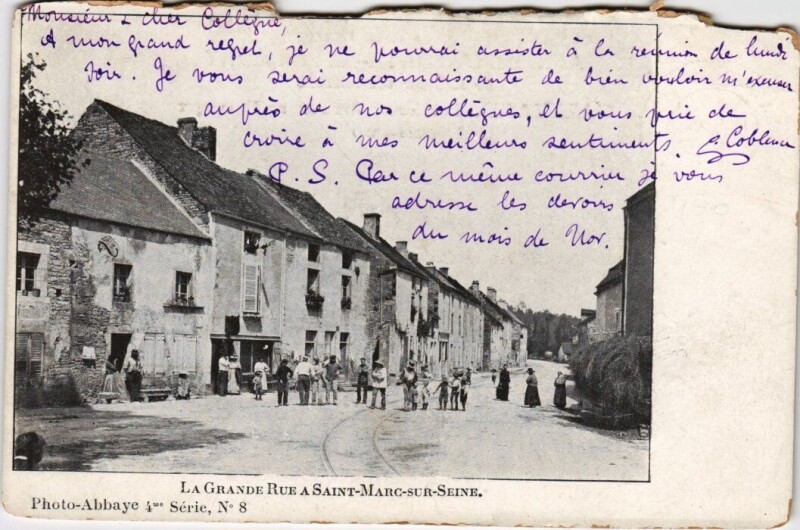 Monsieur & cher Collègue,
A mon grand regret, je ne pourrai assister à la réunion de lundi
soir. Je vous serai reconnaissante de bien vouloir m'excuser
auprès de nos collègues, et vous prie de
croire à mes meilleurs sentiments. G Coblence
P.S. Par ce même courrier je vous
adresse les devoirs
du mois de Nov.
LA GRANDE RUE A SAINT-MARC-SUR-SEINE.
Photo-Abbaye 4me Série, N° 8